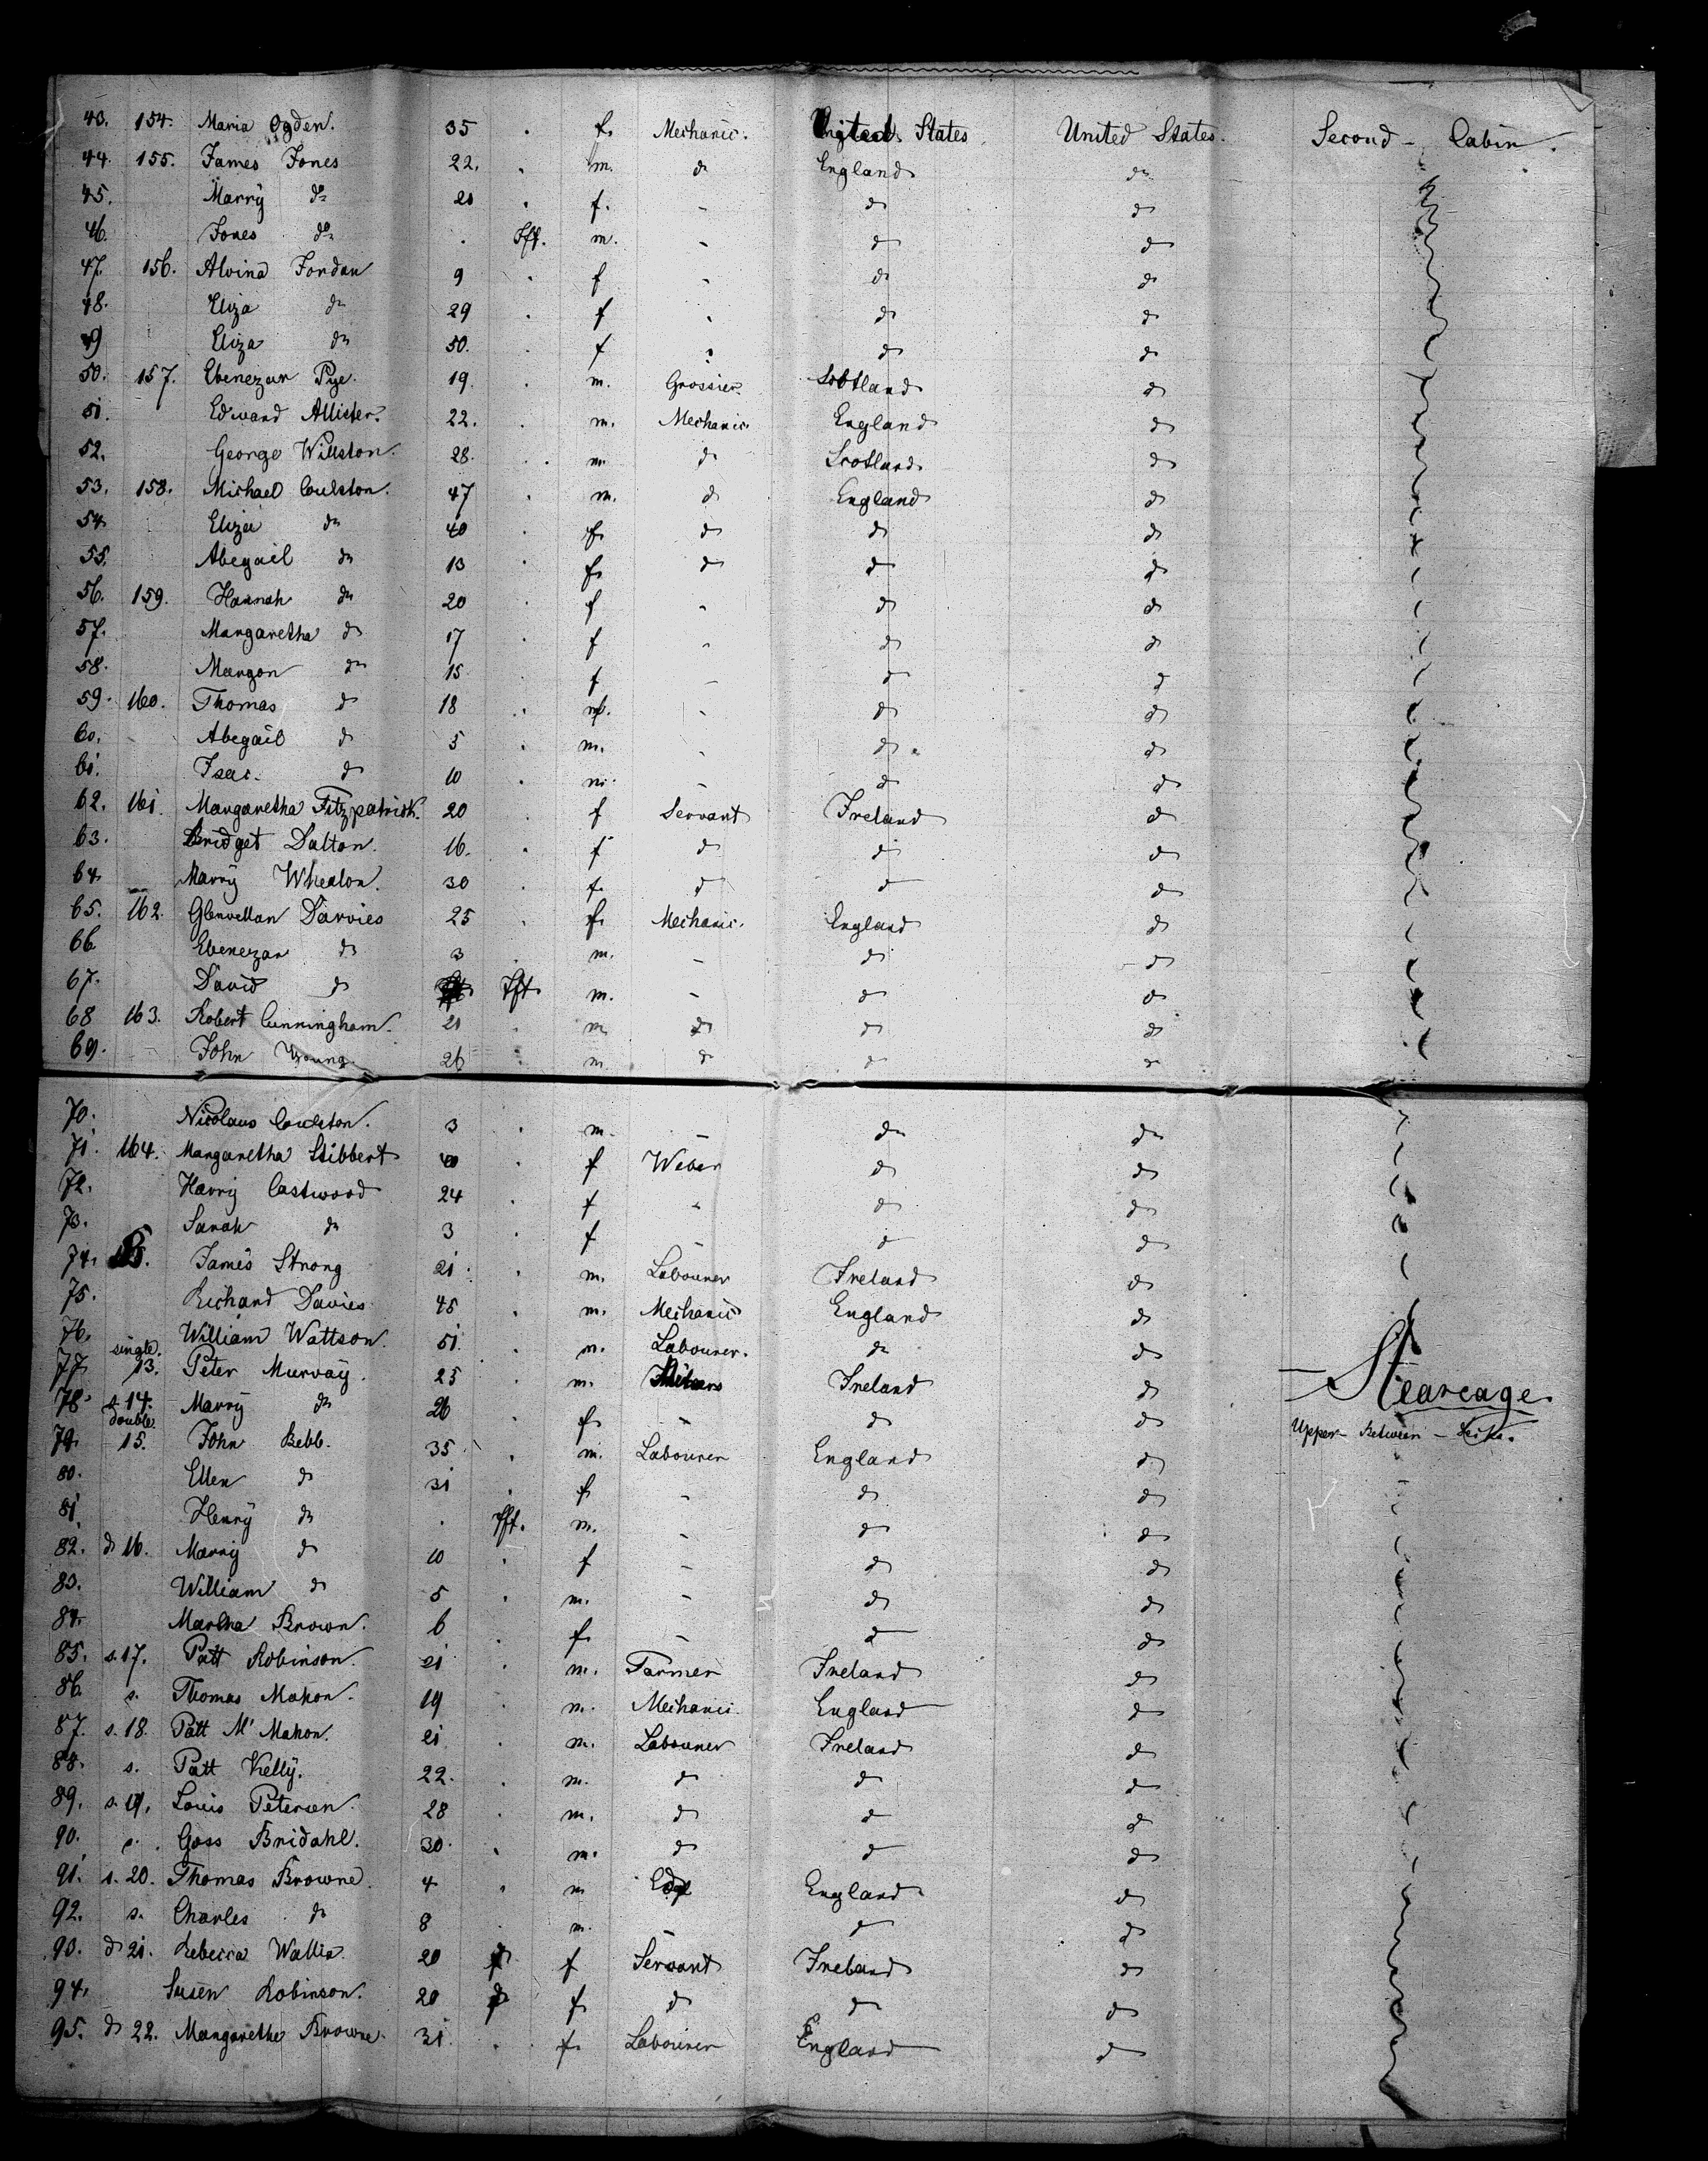 43. 154. Maria Ogden. 35 . f. Mechanic. United States United States. Second - Cabin.
44. 155. James Jones 22. . m. do England do
45. Marry do 21 . f. - do do
46. Jones do . Jft. m. - do do
47. 156. Alvina Jordan 9 . f - do do
48. Eliza do 29 . f . do do
49 Eliza do 50. f do do
50. 157. Ebenezar Pye. 19. . m. Grossier Scotland do
51. Edward Allister. 22. . m. Mechanic England do
52. George Willston. 28. . m do Scotland do
53. 158. Michael Coulston. 47 . m. do England do
54 Eliza do 40 . f. do do do
55. Abegail do 13 . f. do do do
56. 159. Hannah do 20 . f - do do
57. Margaretha do 17 . f - do do
58. Margon do 15 . f - do do
59. 160. Thomas do 18 . m. - do do
60. Abegail do 5 . m. - do do
61. Isac. do 10 . m. - do do
62. 161. Margaretha Fitzpatrick. 20 f Servant Ireland do
63. Bridget Dalton. 16. . f do do do
64 Marry Whealon. 30 . f. do do do
65. 162. Glenvellan Darvies 25 . f. Mechanic. England do
66 Ebenezar do 3 . m. - do do
67. David do Jft. m. - do do
68 163. Robert Cunningham. 21 . m do do do
69. John Young. 26 . m do do do
70. Nicolaus Coulston. 3 . m. - do do
71. 164. Margaretha Stibbert 40 . f Weber do do
72. Harry Eastwood 24 . f - do do
73. Sarah do 3 . f - do do
74. James Strong 21. . m. Labourer Ireland do
75. Richard Davies 45 . m. Mechanic England do
76. William Wattson. 51. . m. Labourer. do do
single.
77 13. Peter Murray. 25 . m. Ireland do Stearcage
78. s. 14. Marry do 26 . f. - do do
double Upper - Between - Decks.
79 15. John Bebb. 35. . m. Labourer England do
80. Ellen do 31 . f - do do
81. Henry do . Jft. m. - do do
82. d 16. Marry do 10 . f - do do
83. William do 5 . m. - do do
84. Martha Brown. 6 f. - do do
85. s. 17. Patt Robinson. 21 . m. Farmer Ireland do
86. s. Thomas Mahon. 19 . m. Mechanic. England do
87. s. 18. Patt Mc Mahon. 21 . m. Labourer Ireland do
88. s. Patt Kelly. 22. . m. do do do
89. s. 19. Louis Petersen. 28 . m. do do do
90. s. Goss Bridahl. 30. . m. do do do
91. s. 20. Thomas Browne. 4 . m England do
92. s. Charles do 8 m. - do do
93. d 21. Rebecca Wallis. 20 f Servant Ireland do
94. Susen Robinson. 20 f. do do do
95. d 22. Margaretha Browne. 31. . f. Labourer England do